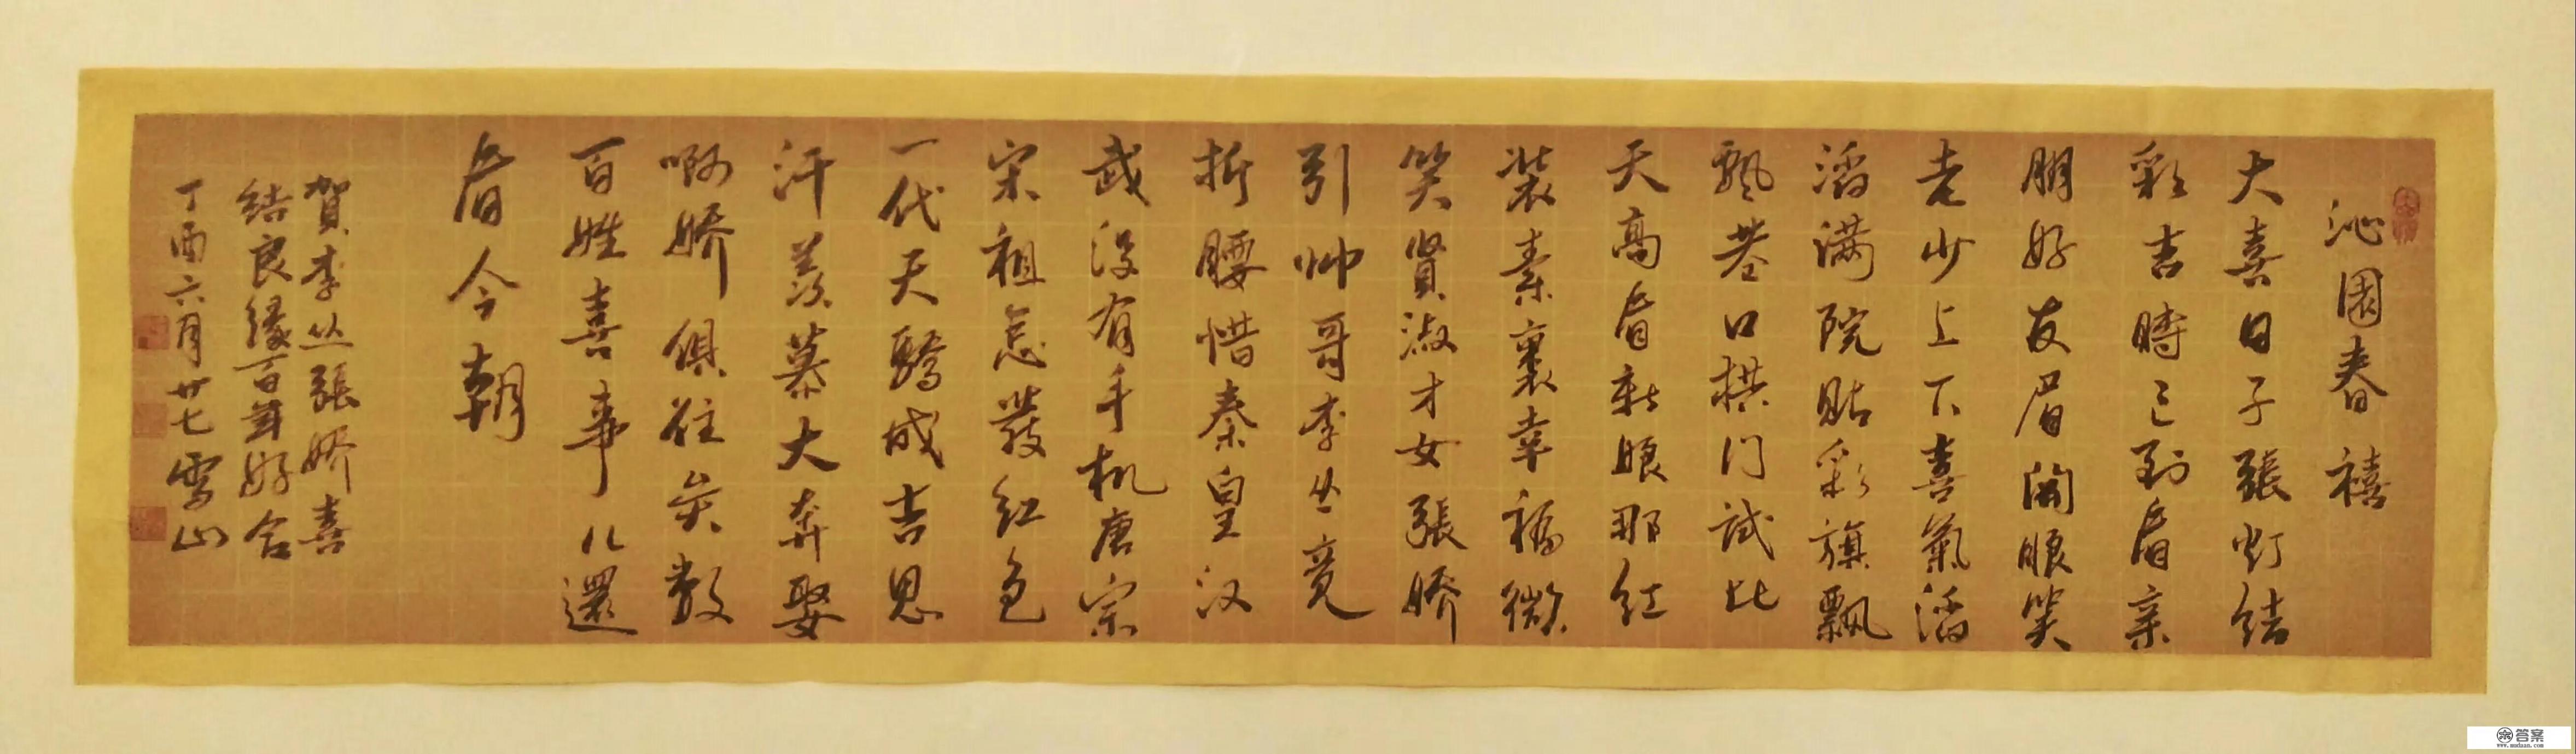 沁園春 禧
大喜日子張灯結
彩吉時已到看亲
朋好友眉開眼笑
老少上下喜氣滔
滔满院貼彩旗飄
飄巷口拱门試比
天高看新娘那红
裝素裹幸福微
笑賢淑才女張嬌
引帅哥李丛竟
折腰惜秦皇汉
武没有手机唐宗
宋祖怎發红包
一代天驕成吉思
汗羡慕大奔娶
啊嬌俱往矣数
百姓喜事儿還
看今朝
賀李丛張嬌喜
結良緣百年好合
丁酉六月廿七雪山
答案